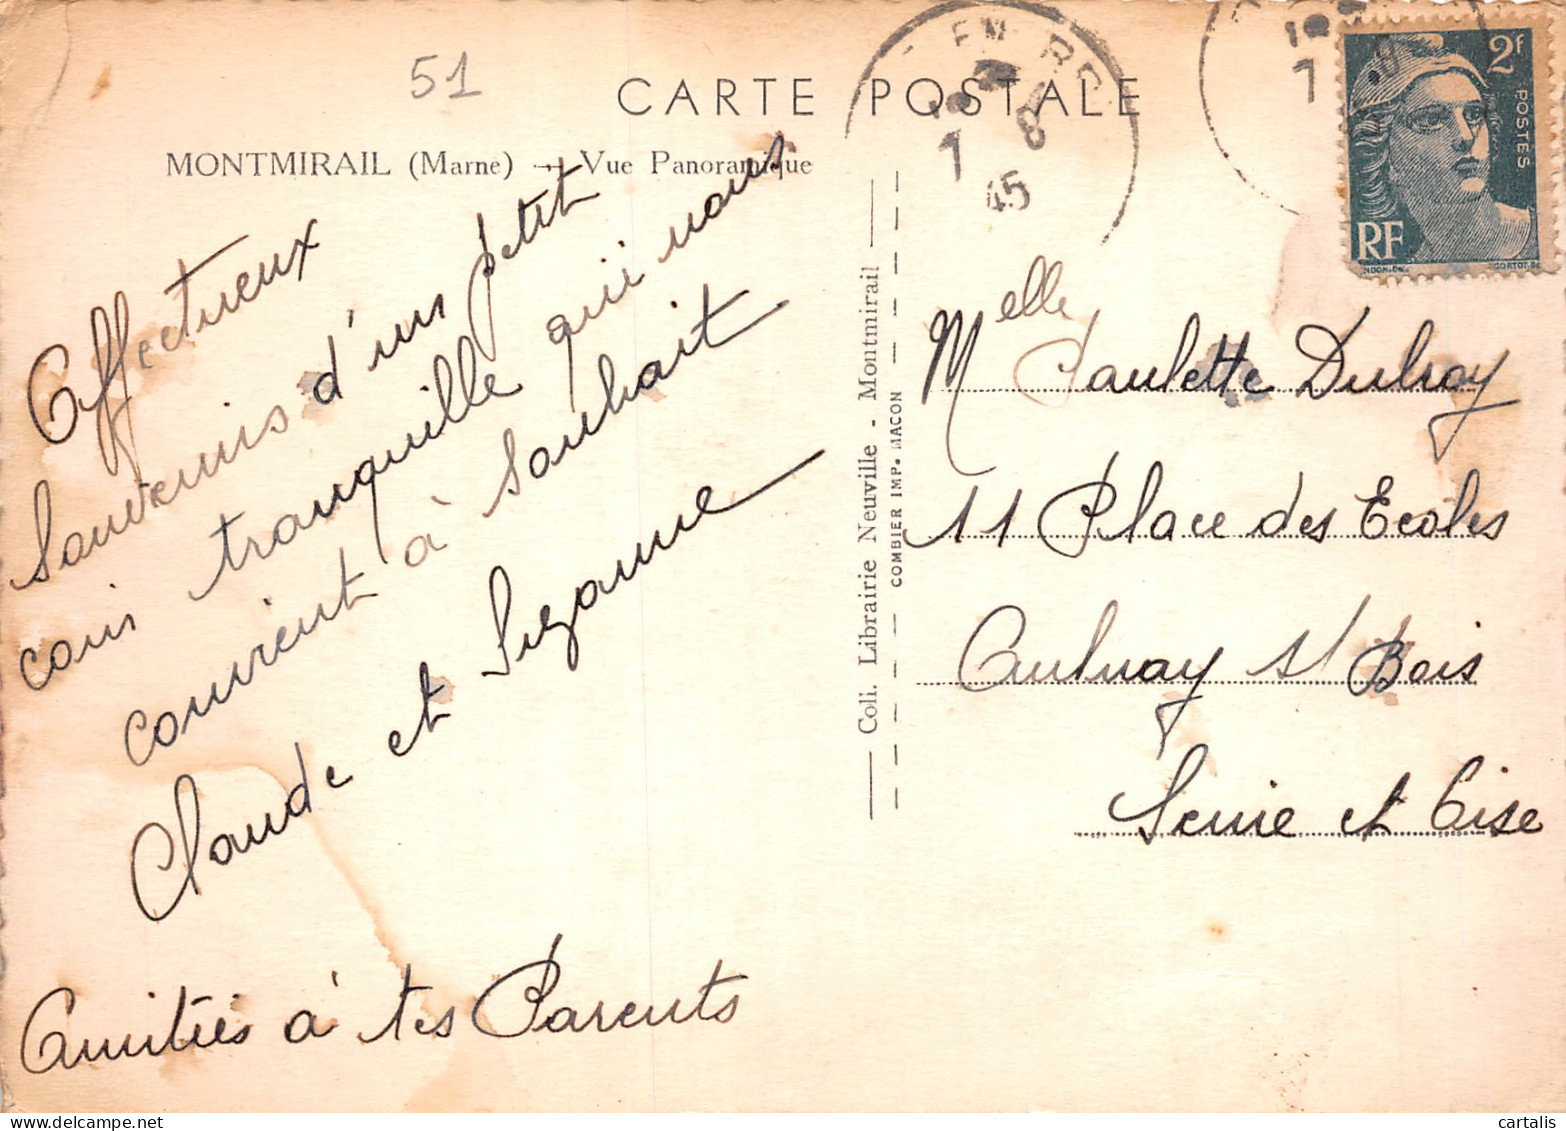 51
CARTE POSTALE
MONTMIRAIL (Marne) — Vue Panoramique
Affectueux
Souvenirs d'un petit
coin tranquille qui nous
convient à souhait
Claude et Suzanne
Amitiés à tes Parents
Coll. Librairie Neuville - Montmirail
COMBIER IMP. MACON
EM BR
7 8
45
7
2f
POSTES
RF
Melle Paulette Dubray
11 Place des Ecoles
Aulnay s/ Bois
Seine et Oise
cartalis